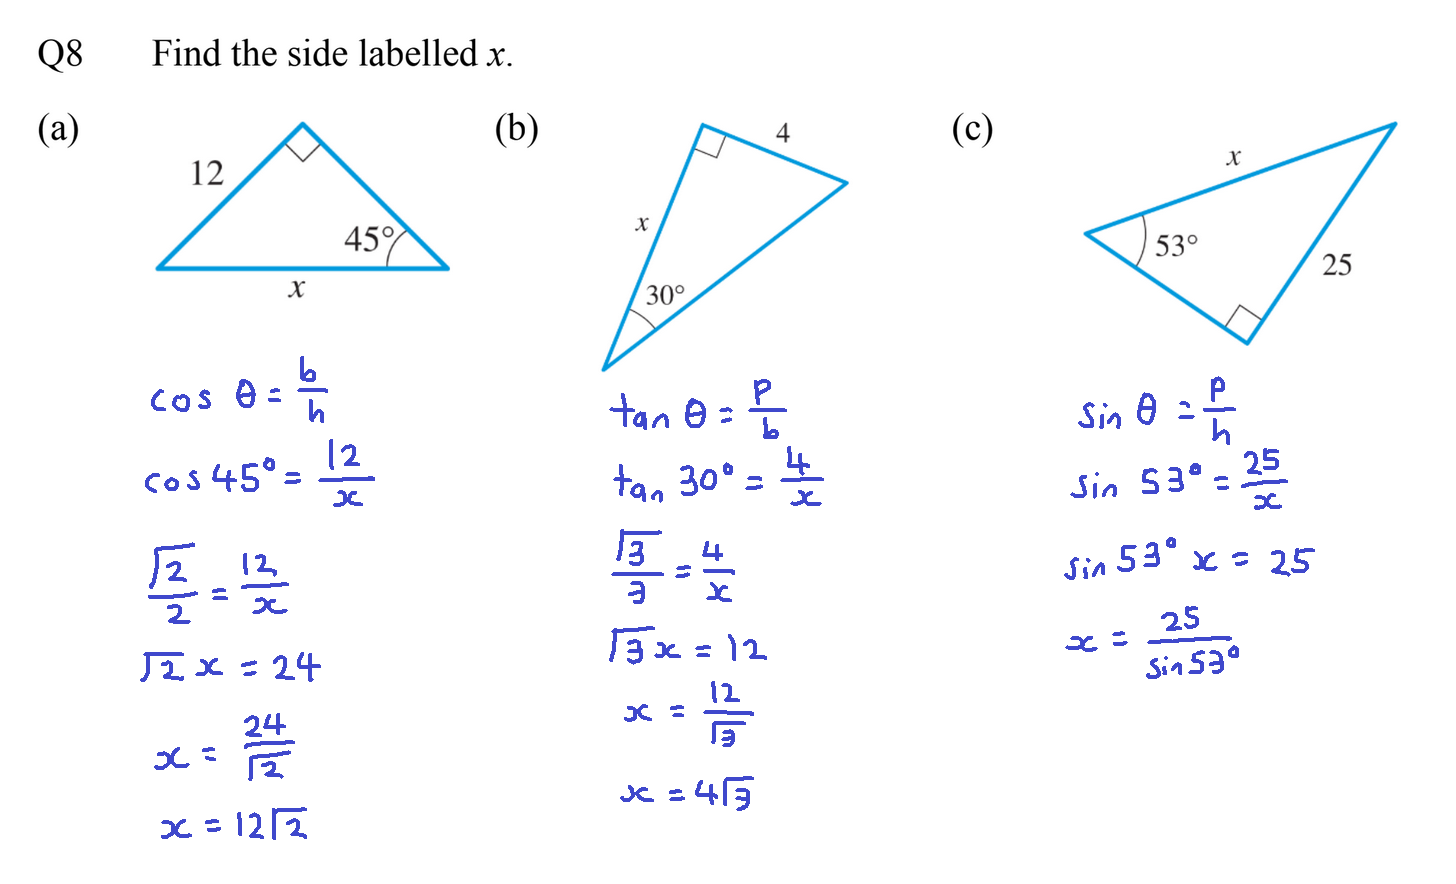 Q8 Find the side labelled x.
(a)
12
45°
x
cos θ = b/h
cos 45° = 12/x
√2/2 = 12/x
√2 x = 24
x = 24/√2
x = 12√2
(b)
4
x
30°
tan θ = p/b
tan 30° = 4/x
√3/3 = 4/x
√3 x = 12
x = 12/√3
x = 4√3
(c)
x
53°
25
sin θ = p/h
sin 53° = 25/x
sin 53° x = 25
x = 25/sin 53°